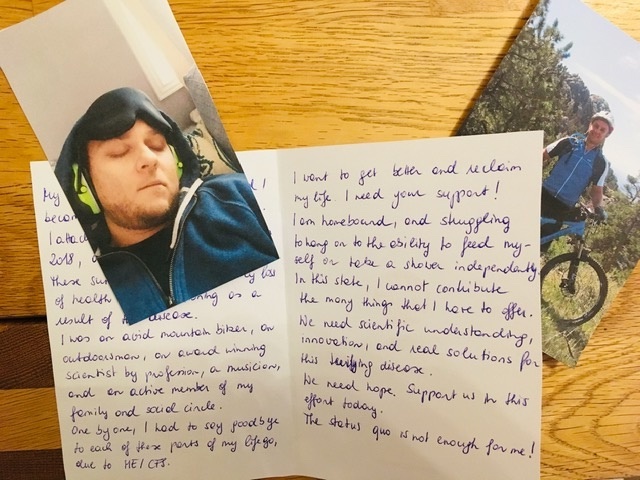 My
I
becom
I attac
2018, a
These su
loss
of health
ing as a
result of
disease.
I was an avid mountain biker, an
outdoorsman, an award winning
scientist by profession, a musician,
and an active member of my
family and social circle.
One by one, I had to say goodbye
to each of these parts of my life go,
due to ME/CFS.
I want to get better and reclaim
my life. I need your support!
I am homebound, and struggling
to hang on to the ability to feed my-
self or take a shower independently.
In this state, I cannot contribute
the many things that I have to offer.
We need scientific understanding,
innovation, and real solutions for
this disease.
We need hope. Support us in this
effort today.
The status quo is not enough for me!